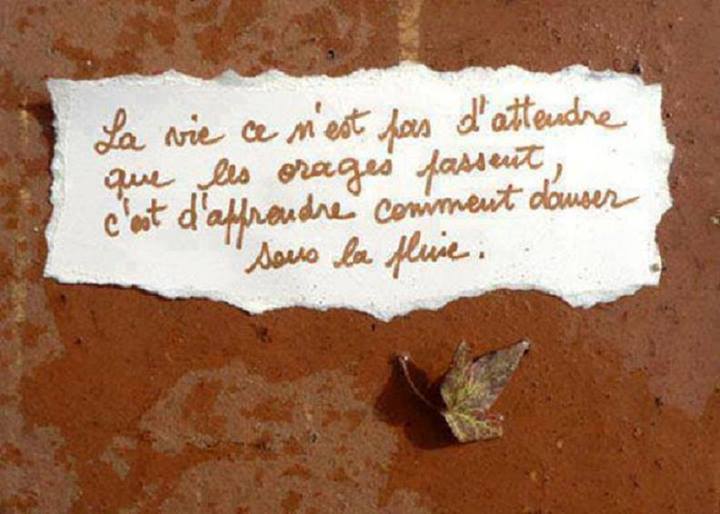 La vie ce n'est pas d'attendre
que les orages passent,
c'est d'apprendre comment danser
sous la pluie.